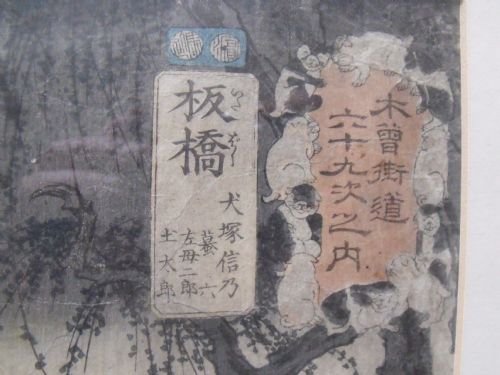 木曽街道
六十九次之内
板橋
いたばし
犬塚信乃
蟇六
左母二郎
土太郎